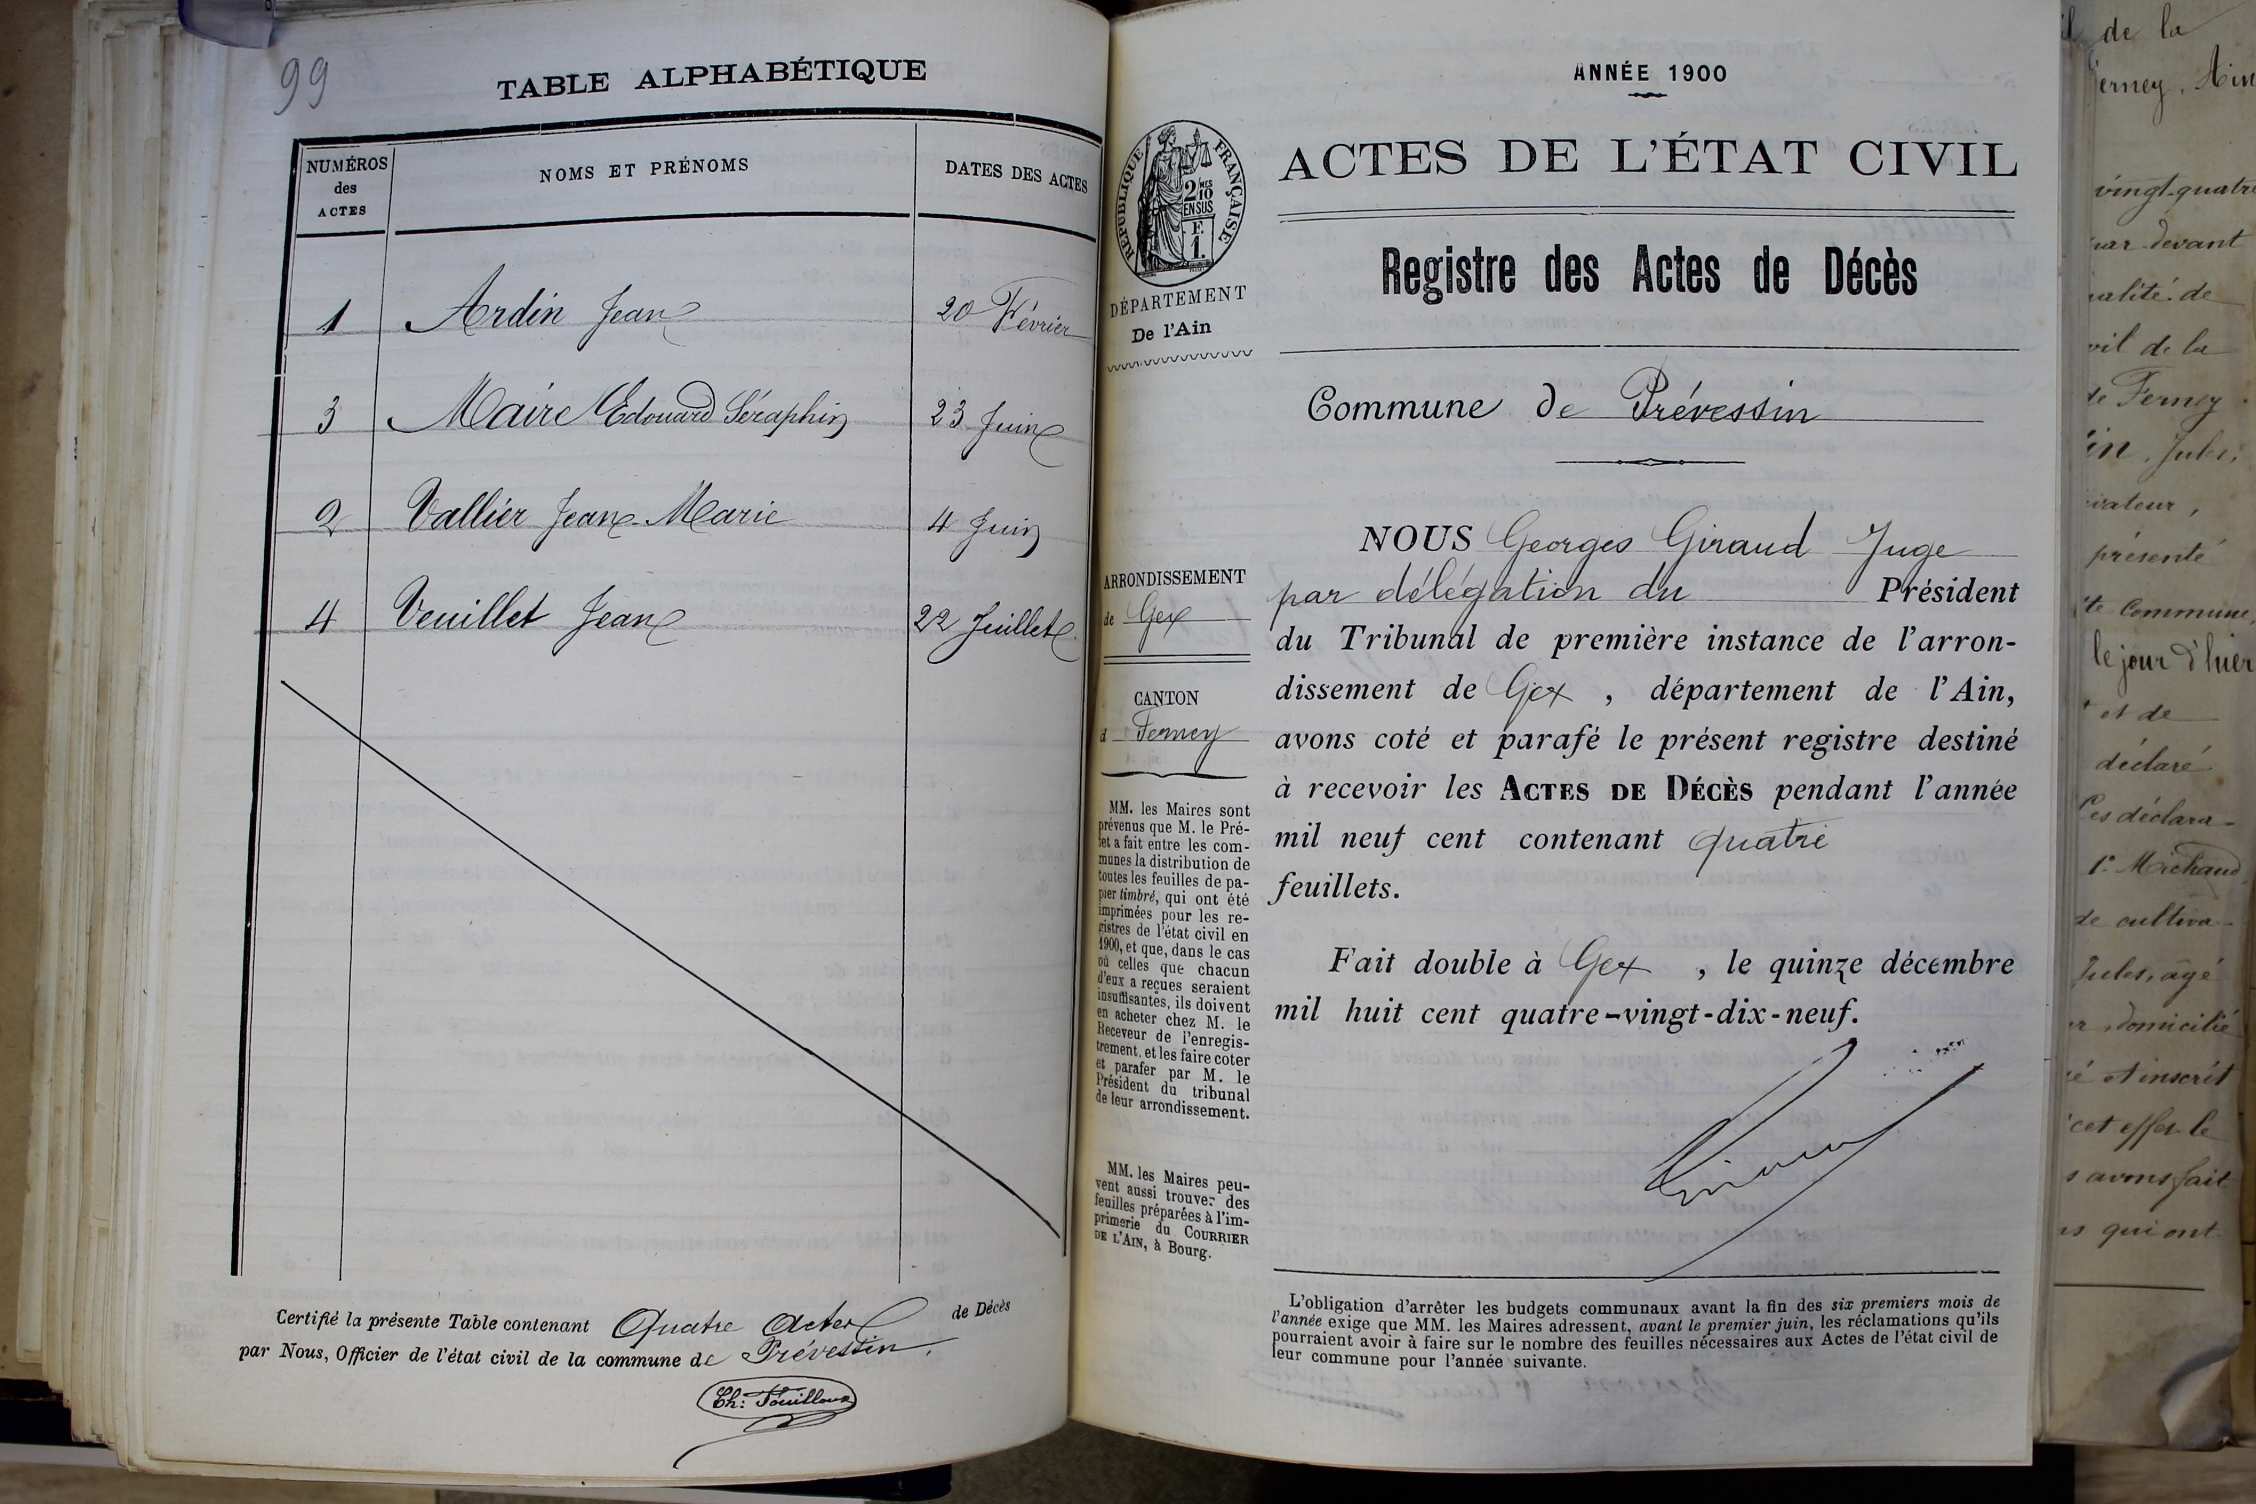 99
TABLE ALPHABÉTIQUE
NUMÉROS
des
ACTES
NOMS ET PRÉNOMS
DATES DES ACTES
1 Ardin Jean 20 Février
3 Maire Edouard Séraphin 23 Juin
2 Vallier Jean-Marie 4 Juin
4 Veuillet Jean 22 Juillet
Certifié la présente Table contenant Quatre Actes de Décès
par Nous, Officier de l'état civil de la commune de Prévessin.
Th: Fouilloux
RÉPUBLIQUE FRANÇAISE
2 MES
10
EN SUS
F.
1.
DÉPARTEMENT
De l'Ain
ARRONDISSEMENT
de Gex
CANTON
d Ferney
MM. les Maires sont
prévenus que M. le Pré-
fet a fait entre les com-
munes la distribution de
toutes les feuilles de pa-
pier timbré, qui ont été
imprimées pour les re-
gistres de l'état civil en
1900, et que, dans le cas
où celles que chacun
d'eux a reçues seraient
insuffisantes, ils doivent
en acheter chez M. le
Receveur de l'enregis-
trement, et les faire coter
et parafer par M. le
Président du tribunal
de leur arrondissement.
MM. les Maires peu-
vent aussi trouver des
feuilles préparées à l'im-
primerie du COURRIER
DE L'AIN, à Bourg.
ANNÉE 1900
ACTES DE L'ÉTAT CIVIL
Registre des Actes de Décès
Commune de Prévessin
NOUS Georges Giraud Juge
par délégation du Président
du Tribunal de première instance de l'arron-
dissement de Gex , département de l'Ain,
avons coté et parafé le présent registre destiné
à recevoir les ACTES DE DÉCÈS pendant l'année
mil neuf cent contenant quatre
feuillets.
Fait double à Gex , le quinze décembre
mil huit cent quatre-vingt-dix-neuf.
L'obligation d'arrêter les budgets communaux avant la fin des six premiers mois de
l'année exige que MM. les Maires adressent, avant le premier juin, les réclamations qu'ils
pourraient avoir à faire sur le nombre des feuilles nécessaires aux Actes de l'état civil de
leur commune pour l'année suivante.
de la
Ferney, Ain
vingt-quatre
par devant
de
de la
de Ferney
Jules,
présenté
commune,
le jour d'hier
et de
déclaré
Ces déclara-
1° Michaud
de cultiva-
Jules, âgé
domicilié
et inscrit
cet effet le
avons fait
qui ont